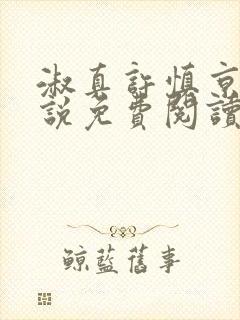 淑真許慎京
說免費閱讀
鯨藍舊事